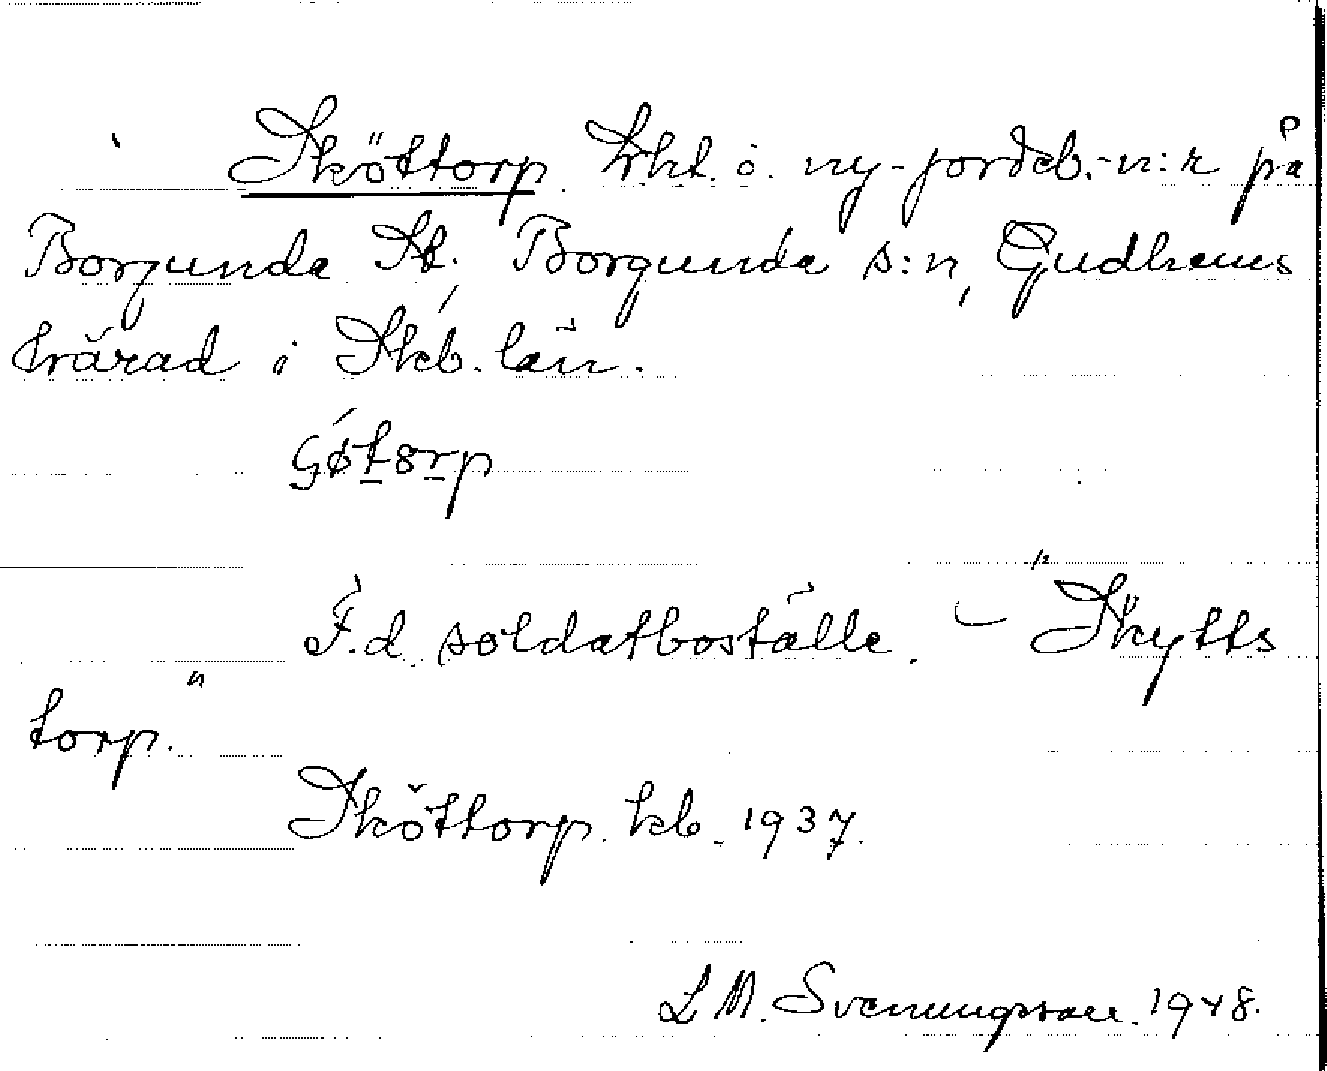 Sköttorp. Lht. o. ny-jordeb.-n:r på
Borgunda St. Borgunda s:n, Gudhems
härad i Skb. län.
F.d. soldatboställe. – "Skytts
torp."
Sköttorp. kb. 1937.
L M. Svenungsson. 1948.